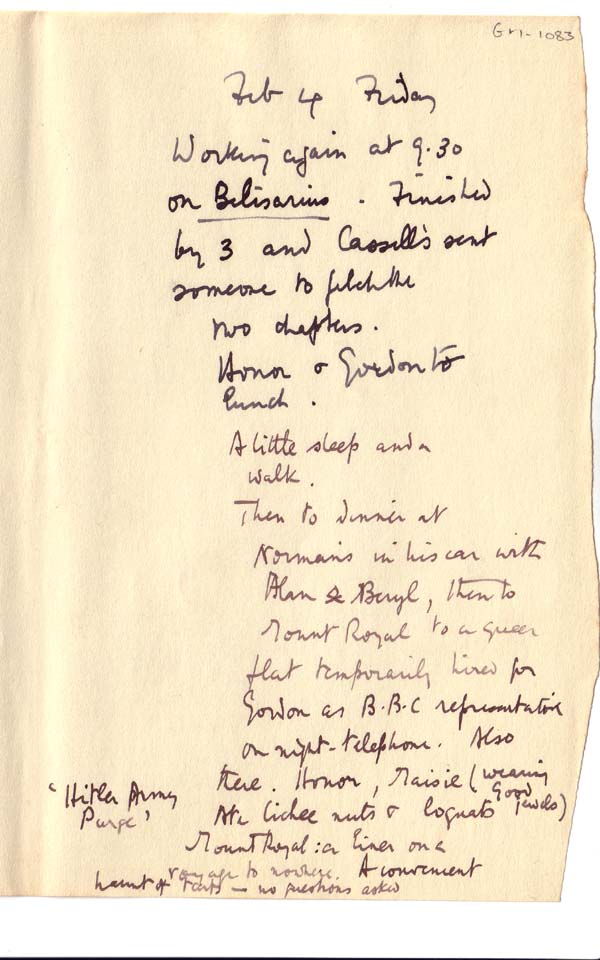 GRI-1083
Feb 4 Friday
Working again at 9.30
on Belisarius. Finished
by 3 and Cassell's sent
someone to fetch the
two chapters.
Honor & Gordon to
lunch.
A little sleep and a
walk.
Then to dinner at
Norman's in his car with
Alan & Beryl, then to
Mount Royal to a queer
flat temporarily hired for
Gordon as B.B.C representative
on night-telephone. Also
there. Honor, Maisie (wearing
good jewels)
'Hitler Army
Purge'
Ate lichee nuts & loquats
Mount Royal: a liner on a
voyage to nowhere. A convenient
haunt of tarts — no questions asked